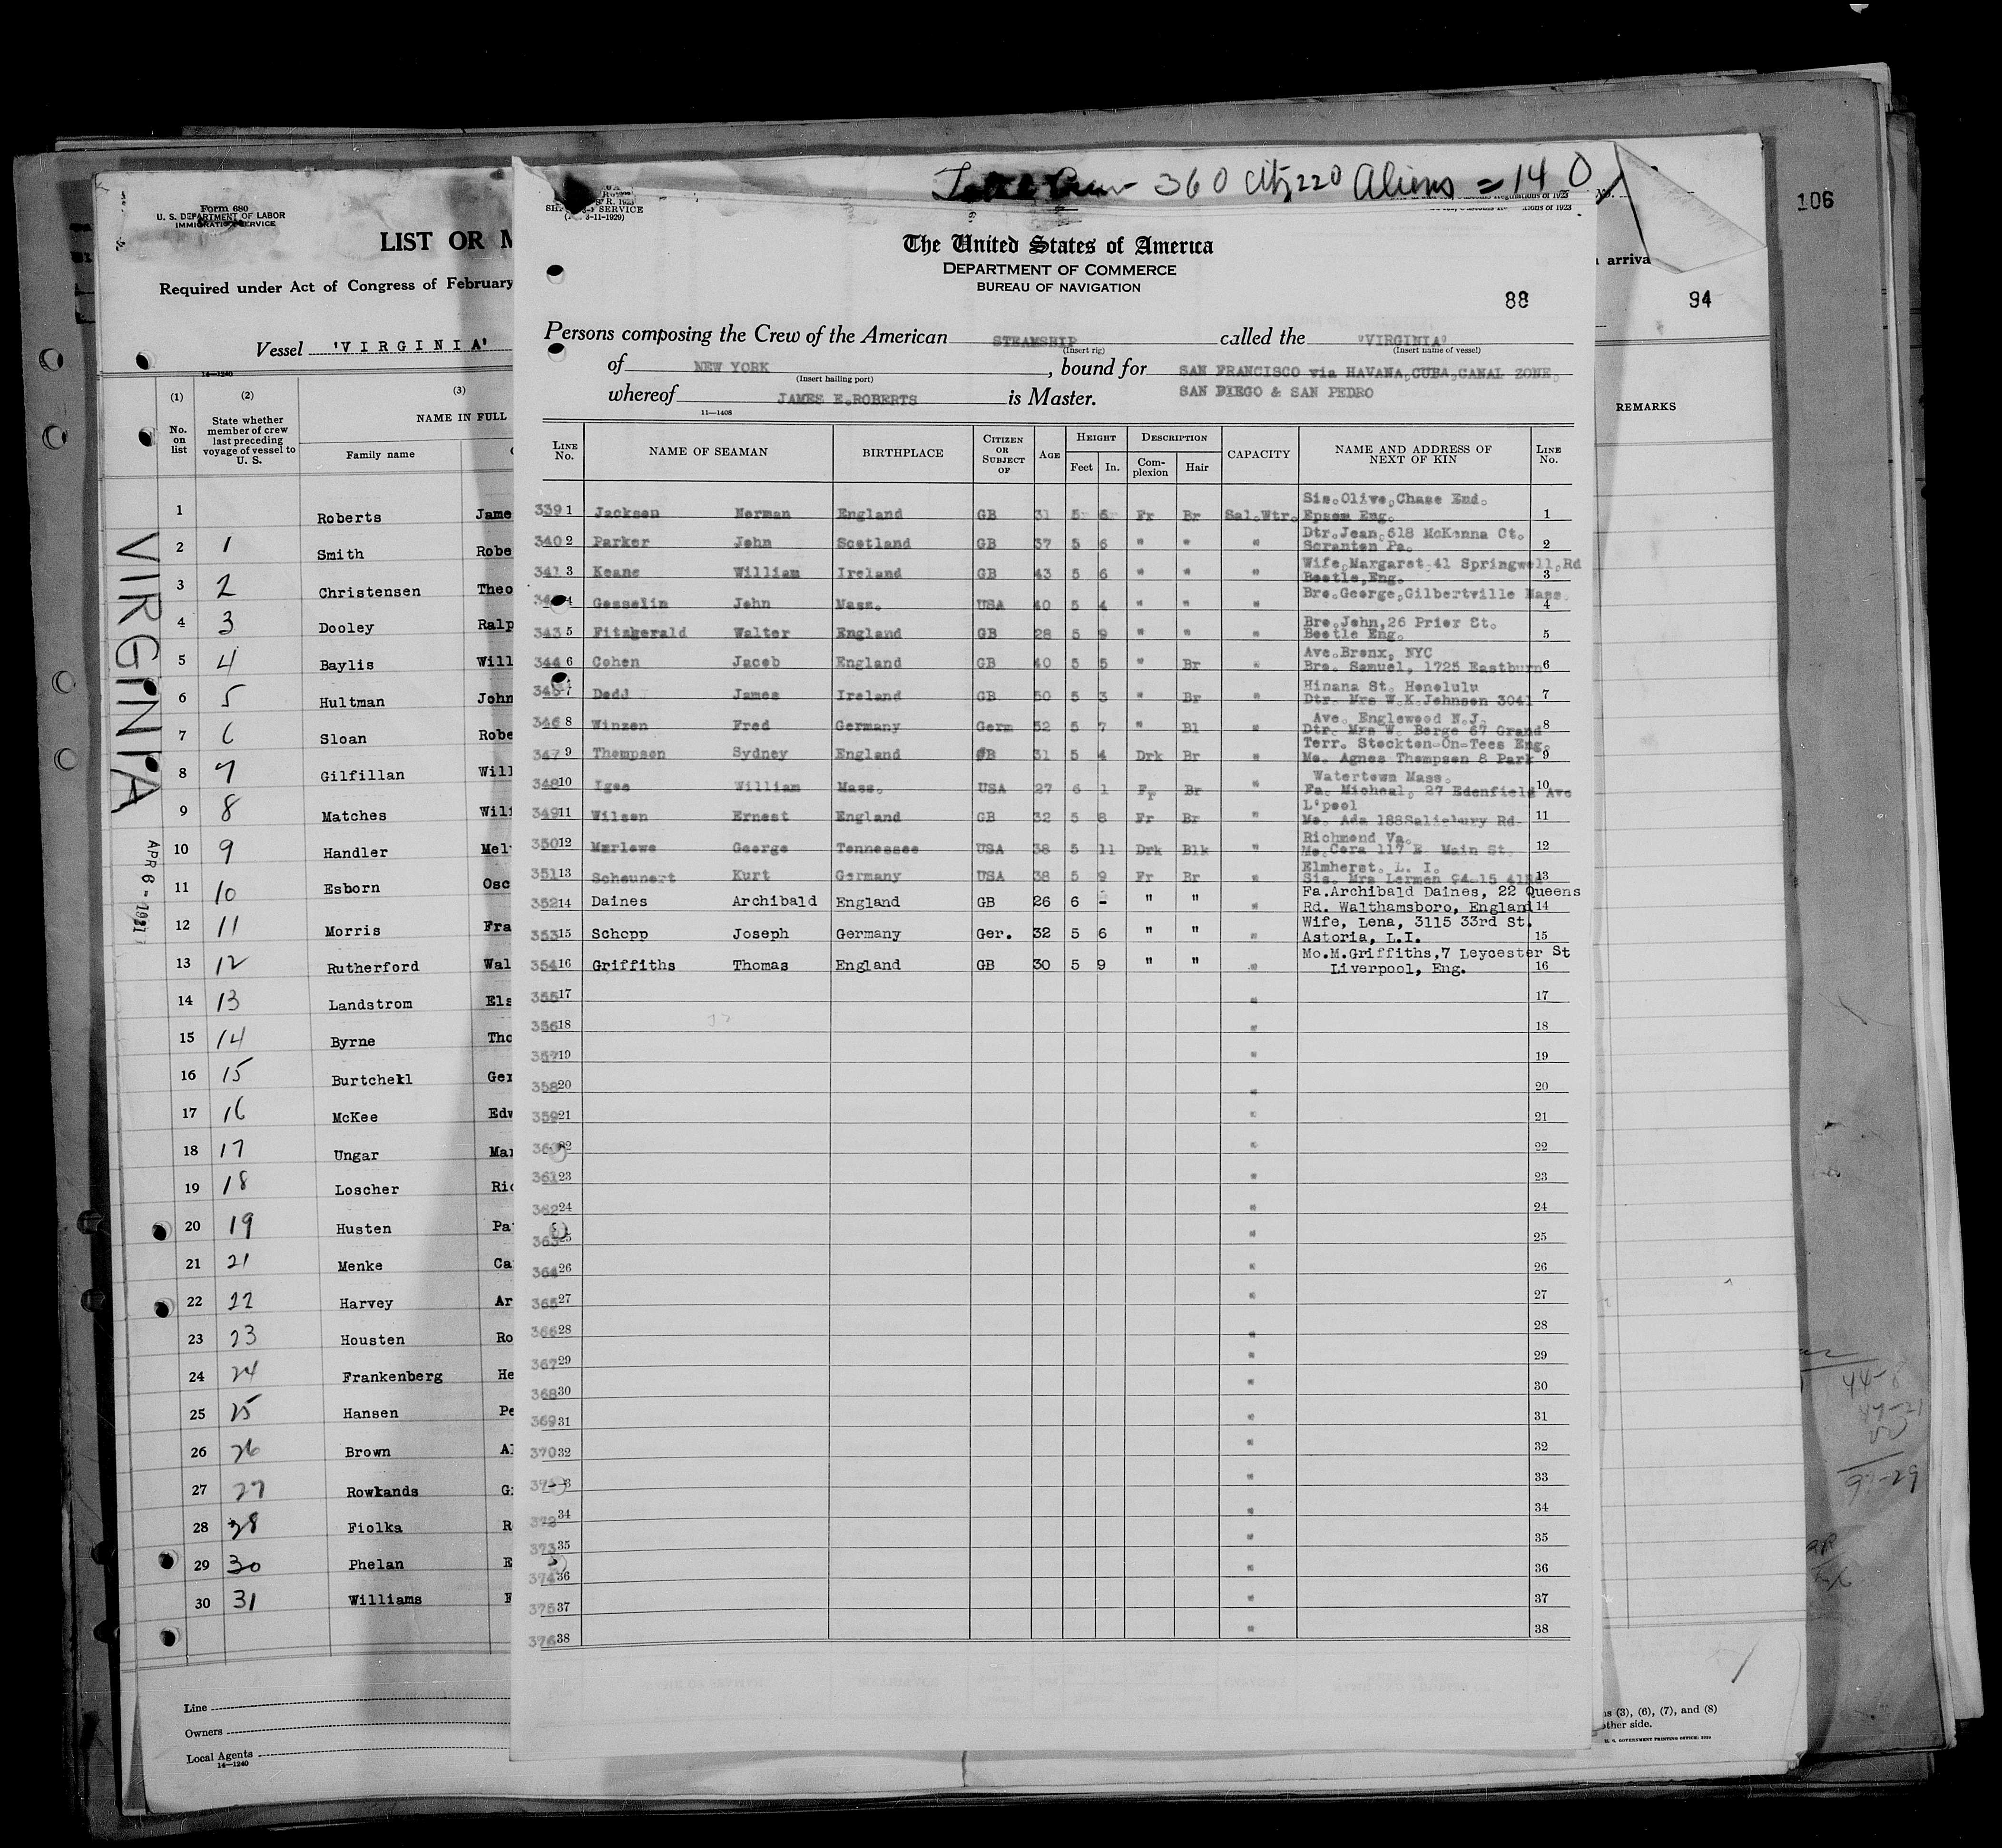 106
Form 680
U. S. DEPARTMENT OF LABOR
IMMIGRATION SERVICE
LIST OR M
Required under Act of Congress of February
Vessel 'VIRGINIA'
14—1240
(1) (2) (3)
No. on list
State whether member of crew last preceding voyage of vessel to U. S.
NAME IN FULL
Family name
VIRGINIA
APR 6 - 1931
1 Roberts Jame
2 1 Smith Robe
3 2 Christensen Theo
4 3 Dooley Ralp
5 4 Baylis Will
6 5 Hultman John
7 6 Sloan Robe
8 7 Gilfillan Will
9 8 Matches Will
10 9 Handler Mel
11 10 Esborn Osc
12 11 Morris Fra
13 12 Rutherford Wal
14 13 Landstrom Els
15 14 Byrne Tho
16 15 Burtchell Ger
17 16 McKee Edw
18 17 Ungar Max
19 18 Loscher Ric
20 19 Husten Pa
21 21 Menke Ca
22 22 Harvey Ar
23 23 Housten Ro
24 24 Frankenberg He
25 25 Hansen Pe
26 26 Brown Al
27 27 Rowkands G
28 28 Fiolka R
29 30 Phelan E
30 31 Williams
Line
Owners
Local Agents
14—1240
Crew 360 Citz 220 Aliens = 140
SERVICE
The United States of America
DEPARTMENT OF COMMERCE
BUREAU OF NAVIGATION
88
Persons composing the Crew of the American STEAMSHIP called the "VIRGINIA"
(Insert rig) (Insert name of vessel)
of NEW YORK, bound for SAN FRANCISCO via HAVANA,CUBA,CANAL ZONE,
(Insert hailing port)
whereof JAMES E.ROBERTS is Master. SAN DIEGO & SAN PEDRO
11—1408
LINE No. NAME OF SEAMAN BIRTHPLACE CITIZEN OR SUBJECT OF AGE HEIGHT DESCRIPTION CAPACITY NAME AND ADDRESS OF NEXT OF KIN LINE No.
Feet In. Complexion Hair
Sis.Olive,Chase End.
339 1 Jackson Norman England GB 31 5 6 Fr Br Sal.Wtr. Epsom Eng. 1
Dtr.Jean,618 McKenna Ct.
340 2 Parker John Scotland GB 37 5 6 " " " Scranton Pa. 2
Wife,Margaret 41 Springwell,Rd
341 3 Keane William Ireland GB 43 5 6 " " " Bootle,Eng. 3
Bro.George,Gilbertville Mass.
4 Gosselin John Mass. USA 40 5 4 " " " 4
Bro.John,26 Prior St.
343 5 Fitzgerald Walter England GB 28 5 9 " " " Bootle Eng. 5
Ave.Bronx, NYC
344 6 Cohen Jacob England GB 40 5 5 " Br " Bro. Samuel, 1725 Eastburn 6
Hinana St. Honolulu
345 7 Dodd James Ireland GB 50 5 3 " Br " Dtr. Mrs W.K.Johnson 3041 7
Ave. Englewood N.J.
346 8 Winzen Fred Germany Germ 52 5 7 " Bl " Dtr. Mrs W. Berge 67 Grand 8
Terr. Stockton-On-Tees Eng.
347 9 Thompson Sydney England GB 31 5 4 Drk Br " Mo. Agnes Thompson 8 Park 9
Watertown Mass.
348 10 Igoe William Mass. USA 27 6 1 Fr Br " Fa. Micheal, 27 Edenfield Ave 10
L'pool
349 11 Wilson Ernest England GB 32 5 8 Fr Br " Mo. Ada 188Salisbury Rd 11
Richmond Va.
350 12 Marlowe George Tennessee USA 38 5 11 Drk Blk " Mo.Cora 117 E. Main St. 12
Elmherst. L. I.
351 13 Scheunert Kurt Germany USA 38 5 9 Fr Br " Sis. Mrs Lermen 94-15 41Rd 13
Fa.Archibald Daines, 22 Queens
352 14 Daines Archibald England GB 26 6 - " " " Rd. Walthamsboro, England 14
Wife, Lena, 3115 33rd St.
353 15 Schopp Joseph Germany Ger. 32 5 6 " " " Astoria, L.I. 15
Mo.M.Griffiths,7 Leycester St
354 16 Griffiths Thomas England GB 30 5 9 " " " Liverpool, Eng. 16
355 17 " 17
356 18 " 18
357 19 " 19
358 20 " 20
359 21 " 21
" 22
361 23 " 23
362 24 " 24
363 25 " 25
364 26 " 26
365 27 " 27
366 28 " 28
367 29 " 29
368 30 " 30
369 31 " 31
370 32 " 32
" 33
372 34 " 34
373 35 " 35
374 36 " 36
375 37 " 37
376 38 " 38
No.
arriva
94
REMARKS
44-8
91-29
(3), (6), (7), and (8)
other side.
U. S. GOVERNMENT PRINTING OFFICE: